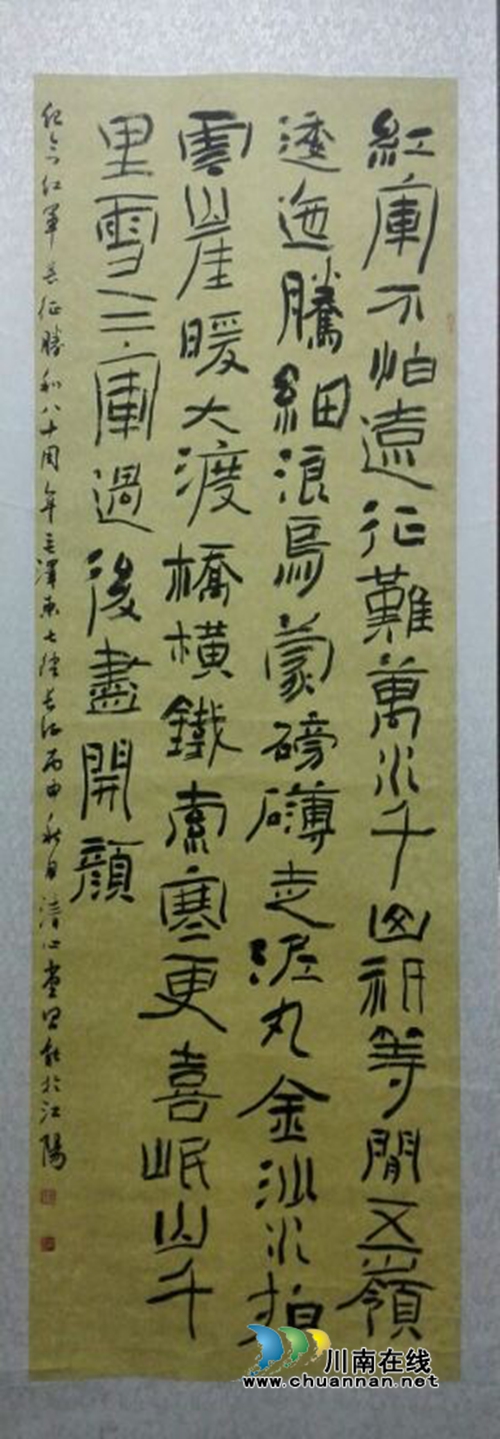 紅軍不怕遠征難萬水千山祇等閒五嶺
逶迤騰細浪烏蒙磅礴走泥丸金沙水拍
雲山崖暖大渡橋橫鐵索寒更喜岷山千
里雪三軍過後盡開顏
紀念紅軍長征勝利八十周年毛澤東七律長征丙申秋月清心堂 於江陽
川南在线
www.chuannan.net